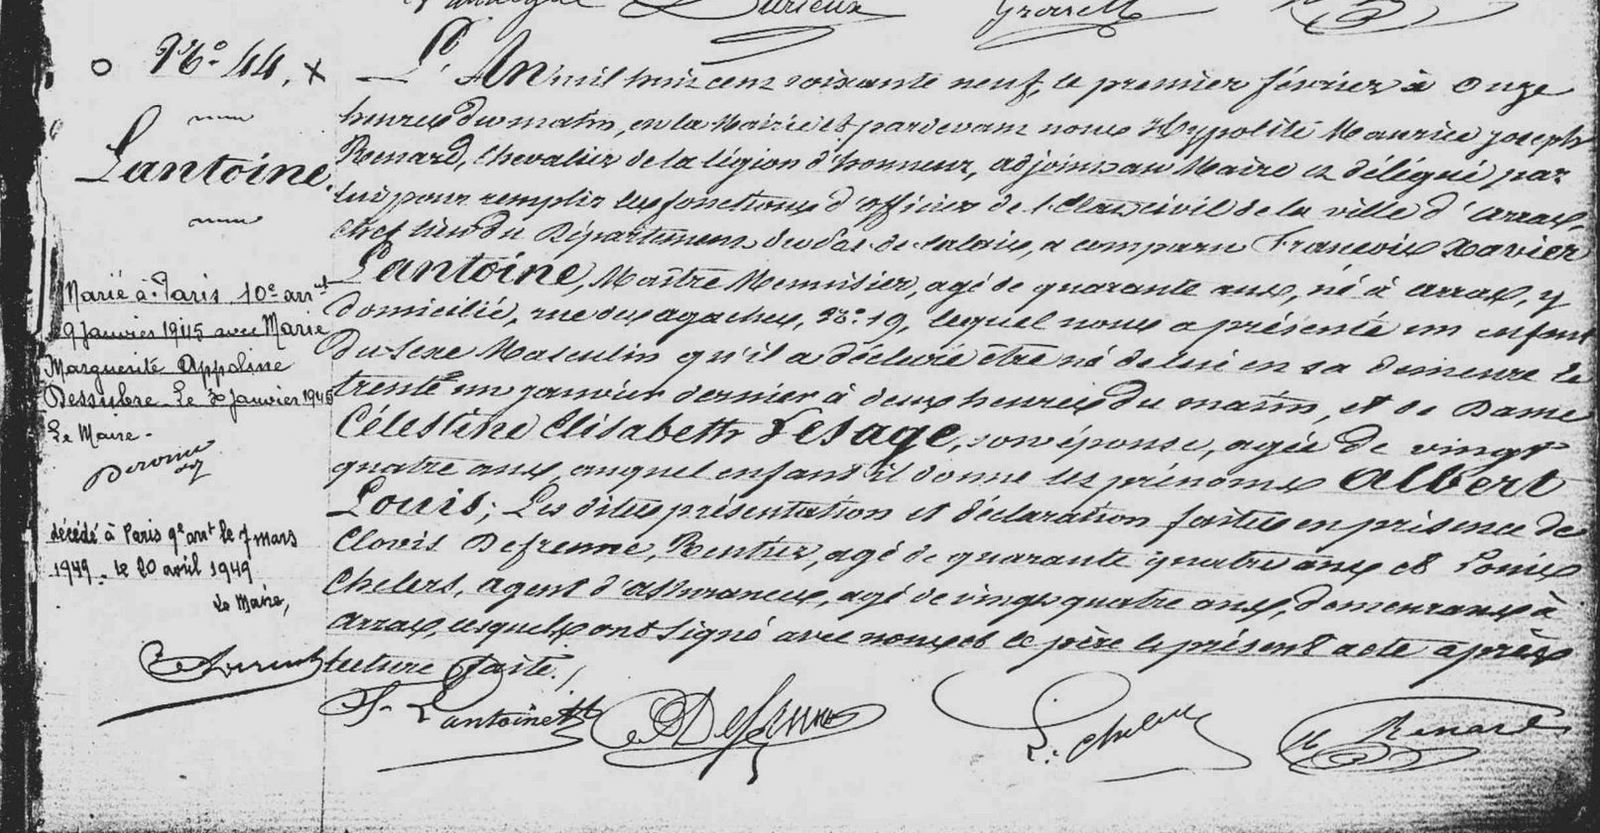 Durieux
N° 44. x
Lantoine.
Marié à Paris 10e arrt
9 janvier 1945 avec Marie
Marguerite Appoline
Dessubre Le 30 janvier 1945
Le Maire.
décédé à Paris 9e arrt le 7 mars
1949. le 20 avril 1949
Le Maire,
L'An mil huit cent soixante neuf, le premier février à onze
heures du matin, en la Mairie et pardevant nous Hyppolite Maurice Joseph
Renard, Chevalier de la légion d'honneur, adjoint au Maire et délégué par
lui pour remplir les fonctions d'officier de l'Etat civil de la ville d'Arras,
chef lieu du Département du Pas de Calais, a comparu François Xavier
Lantoine, Maître Menuisier, agé de quarante ans, né à Arras, y
domicilié, rue des agaches, N° 19, lequel nous a présenté un enfant
du sexe Masculin qu'il a déclaré être né de lui en sa demeure le
trente un janvier dernier à deux heures du matin, et de Dame
Célestine Elisabeth Lesage, son épouse, agée de vingt
quatre ans, auquel enfant il donne les prénoms Albert
Louis; Les dites présentation et déclaration faites en présence de
Clovis Defrenne, Rentier, agé de quarante quatre ans et Louis
Chelers, agent d'assurances, agé de vingt quatre ans, demeurant à
Arras, lesquels ont signé avec nous et le père le présent acte après
lecture faite.
F. Lantoine Defrenne L. Chelers H Renard